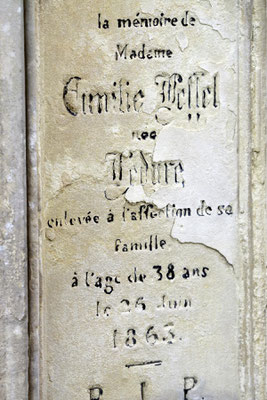 la mémoire de
Madame
Emilie
née
enlevée à l'affection de sa
famille
à l'age de 38 ans
le 25 Juin
1863.
R. I. P.